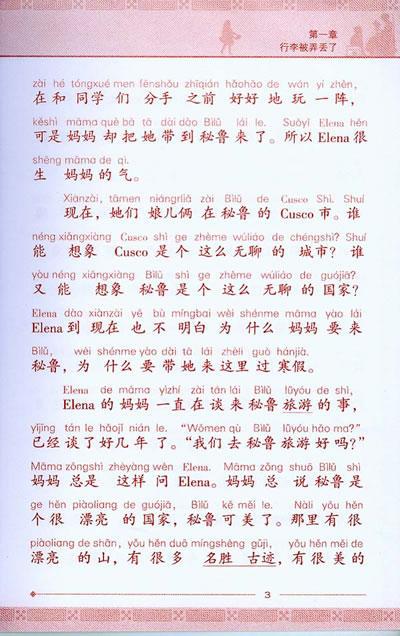 第一章
行李被弄丢了
zài hé tóngxué men fēnshǒu zhīqián hǎohāo de wán yí zhèn,
在和同学们分手之前好好地玩一阵，
kěshì māma què bǎ tā dài dào Bìlǔ lái le. Suǒyǐ Elena hěn
可是妈妈却把她带到秘鲁来了。所以Elena很
shēng māma de qì.
生妈妈的气。
Xiànzài, tāmen niángrliǎ zài Bìlǔ de Cusco Shì. Shuí
现在，她们娘儿俩在秘鲁的Cusco市。谁
néng xiǎngxiàng Cusco shì ge zhème wúliáo de chéngshì? Shuí
能想象Cusco是个这么无聊的城市？谁
yòu néng xiǎngxiàng Bìlǔ shì ge zhème wúliáo de guójiā?
又能想象秘鲁是个这么无聊的国家？
Elena dào xiànzài yě bù míngbai wèi shénme māma yào lái
Elena到现在也不明白为什么妈妈要来
Bìlǔ, wèi shénme yào dài tā lái zhèli guò hánjià.
秘鲁，为什么要带她来这里过寒假。
Elena de māma yìzhí zài tán lái Bìlǔ lǚyóu de shì,
Elena的妈妈一直在谈来秘鲁旅游的事，
yǐjīng tán le hǎojǐ nián le. "Wǒmen qù Bìlǔ lǚyóu hǎo ma?"
已经谈了好几年了。“我们去秘鲁旅游好吗？”
Māma zǒngshì zhèyàng wèn Elena. Māma zǒng shuō Bìlǔ shì
妈妈总是这样问Elena。妈妈总说秘鲁是
ge hěn piàoliang de guójiā, Bìlǔ kě měi le. Nàli yǒu hěn
个很漂亮的国家，秘鲁可美了。那里有很
piàoliang de shān, yǒu hěn duō míngshèng gǔjì, yǒu hěn měi de
漂亮的山，有很多名胜古迹，有很美的
3